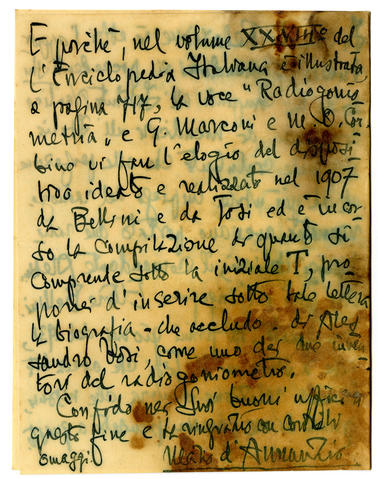 E poichè, nel volume XXVIII° del
l'Enciclopedia Italiana è illustrata,
a pagina 717, la voce "Radiogonio
metria" e G. Marconi e M. O. Cor
bino vi fan l'elogio del disposi
tivo ideato e realizzato nel 1907
da Bellini e da Tosi ed è in cor
so la compilazione di quanto si
comprende sotto la iniziale T, pro
porrei d'inserire sotto tale lettera
la biografia - che accludo - di Ales
sandro Tosi, come uno dei due inven
tori del radiogoniometro.
Confido nei Suoi buoni uffici a
questo fine e La ringrazio con cordiali
omaggi. d'Annunzio